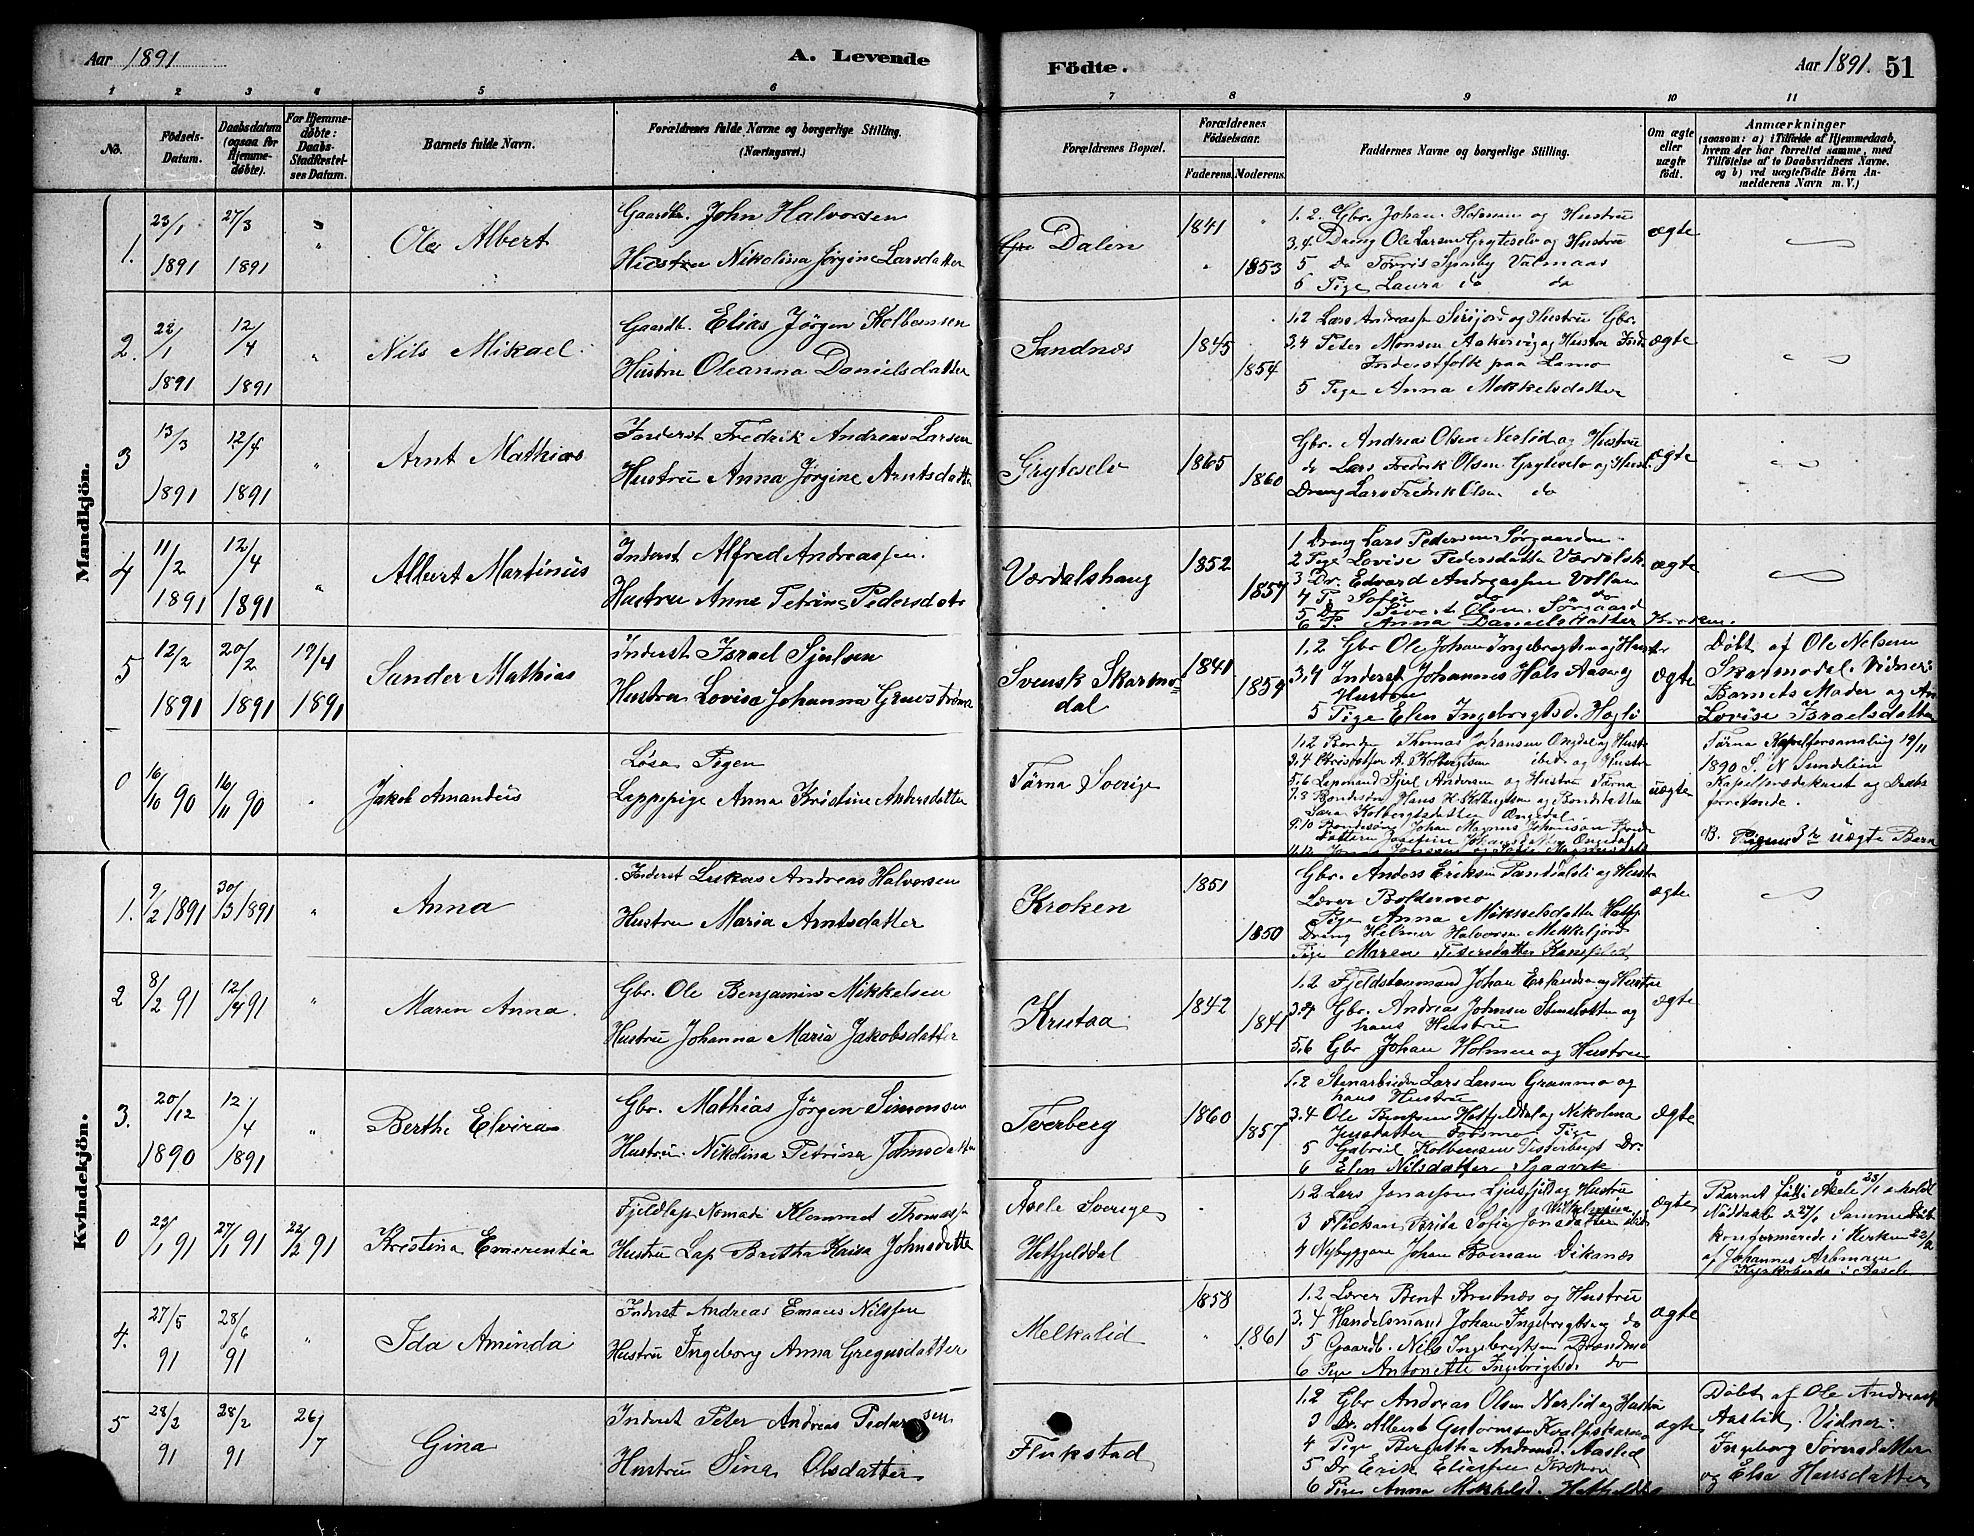 Aar 1891
A. Levende
Födte.
Aar 1891. 51
1 2 3 4 5 6 7 8 9 10 11
No.
Födsels-Datum.
Daabsdatum (ogsaa for Hjemmedöbte).
For Hjemmedöbte: Daabs-Stadfæstelses Datum.
Barnets fulde Navn.
Forældrenes fulde Navne og borgerlige Stilling.
(Næringsvei.)
Forældrenes Bopæl.
Forældrenes Födselsaar.
Faderens. Moderens.
Faddernes Navne og borgerlige Stilling.
Om ægte eller uægte födt.
Anmærkninger
(saasom: a) i Tilfælde af Hjemmedaab, hvem der har forrettet samme, med Tilföielse af to Daabsvidners Navne. og b) ved uægtefödte Börn Anmelderens Navn m. V.)
Mandkjön.
1. 23/1 1891 27/3 1891 " "
Ole Albert
Gaardbr. John Halvorsen
Hustru Nikolina Jørgine Larsdatter
Dalen
1841 1853
1.2. Gbr. Johan Hofman og Hustru
3.4 Dreng Ole Larsen Gryteselv og Hustru
5 do Tørris Valmaas
6 Pige Laura do do
ægte
2. 22/1 1891 12/4 1891 "
Nils Mikael
Gaardb. Elias Jørgen Kolbensen
Hustru Oleanna Danielsdatter
Sandnæs
1845 1854
1.2 Lars Andreassen Sirijord og Hustru Gbr.
3.4 Peter Monsen Aakervig og Hustru
Inderstfolk paa Lamo
5 Pige Anna Mikkelsdatter
ægte
3 13/3 1891 12/4 1891 "
Arnt Mathias
Inderst Fredrik Andreas Larsen
Hustru Anna Jørgine Arntsdatter
Gryteselv
1865 1860
Gbr. Andreas Olsen Neslid og Hustru
do Lars Fredrik Olsen Gryteselv og Hust.
Dreng Lars Fredrik Olsen do
ægte
4 11/2 1891 12/4 1891 "
Albert Martinus
Inderst Alfred Andreassen.
Hustru Anne Petrine Pedersdatr
Værdalshaug
1852 1857
1 Dreng Lars Pedersen Sørgaarden
2 Pige Lovise Pedersdatter Værdalsh.
3 Dr. Edvard Andreassen Vollan
4 P. Sofie do do
5 Dr. Sivert Olsen Sørgaard
6 P. Anna Danielsdatter Kroken.
ægte
5 12/2 1891 20/2 1891 19/4 1891
Sander Mathias
Inderst Israel Sjulsen
Hustru Lovisa Johanna Grunstrøma
Svensk Skarmodal
1841 1859
1.2 Gbr Ole Johan Ingebrigtsen og Hustr
3.4 Inderst Johannes Hals Aasen og Hustru
5 Pige Elen Ingebrigtsd. Hoglö
ægte
Døbt af Ole Nelsen
Skarmodal. Vidner:
Barnets Moder og An
Lovise Israelsdatter
0 16/10 90 16/11 90 "
Jakob Amandus
Løsa Pigen
Lappepige Anna Kristine Andersdatter
Tärna Sverige
1.2 Bonden Thomas Johansen Ongdal og Hustr
3.4 Kristoffer A. Kolbergtsen ibid. og Hustru
5.6 Lapmand Sjul Andersen og Hustru Tärna
7.8 Bondesøn Hans K. Kolbergtsen og Bondedatter
Sara Kolbergtsdatter Ongdal
9.10 Bondesøn Johan Magnus Johansen Bonde
datteren Josefine Johansdatter Ongdal
uægte
Tärna Kapelforsamling 19/11
1890 S. N. Sundelin
Kapelprædikant og Daabs
forrettende.
B. Pigens 3de uægte Barn
Kvindekjön.
1. 9/2 1891 30/3 1891 "
Anna
Inderst Lukas Andreas Halvorsen
Hustru Maria Arntsdatter
Kroken
1851 1850
Gbr. Anders Eriksen og Hustru
Lærer Boldermo
Pige Anna Mikkelsdatter Hatfj
Dreng Helmer Halvorsen Mikkeljord
Pige Maren Pedersdatter
ægte
2 8/2 91 12/4 91 "
Maren Anna.
Gbr. Ole Benjamin Mikkelsen
Hustru Johanna Maria Jakobsdatter
Krutaa
1842 1841
1.2 Fjeldstuemand Johan og Hustru
3.4 Gbr. Andreas Johnsen Stenslotten og
hans Hustru
5.6 Gbr Johan Holmen og Hustru
ægte
3. 20/12 1890 12/4 1891 "
Berthe Elvira
Gbr. Mathias Jørgen Simonsen
Hustru Nikolina Petrina Johnsdatter
Tverberg
1860 1857
1.2 Stenarbeider Lars Larsen Grammo og
hans Hustru
3.4 Ole Bentsen Hatfjelddal og Nikolina
Jensdatter Fosmo. Pige
5 Gabriel Kolbensen Dr.
6 Elen Nilsdatter Sjaavik
ægte
0 23/1 91 27/1 91 22/2 91
Kristina Emerentia
Fjeldlap Nomade Klemmet Thomass
Hustru Lap Britha Kaisa Johnsdatter
Åsele Sverige
Hatfjelddal
1.2 Lars Jonasson Ljusfjeld og Hustru
3 Flickan Brita Sofia Jonsdatter Vilhelmina
4 Nybyggare Johan Roman Dikanæs
ægte
Barnet født i Åsele 23/1 erholdt
Nöddaab d. 27/1 Samme Daab
konfirmerede i Kirken 22/2
af Johannes Arbman
Kyrkoherde i Aasele
4. 27/5 91 28/6 91 "
Ida Aminda
Inderst Andreas Emaus Nilssen
Hustru Ingeborg Anna Gregusdatter
Melkalid
1858 1861
1.2 Lærer Bent Krutnæs og Hustru
3.4 Handelsmand Johan Ingebrigtsen og do
5 Gaardb. Nils Ingebrigtsen Brændmo
6 Pige Antonette Ingebrigtsd. do
ægte
5 28/2 91 28/2 91 26/7
Gina
Inderst Peter Andreas Pedersen
Hustru Sina Olsdatter
Flukstad
1.2 Gbr Andreas Olsen Neslid og Hustru
3 Dr. Albert Guttormsen Kvalpskarmo
4 Pige Bergitha Andreasd. Aaslid
5 Dr Erik Eliassen Kroken
6 Pige Anna Mikkelsd. Hatfjelddal
ægte
Døbt af Ole Andreass
Aaslid. Vidner:
Ingeborg Sørensdatter
og Elsa Hansdatter